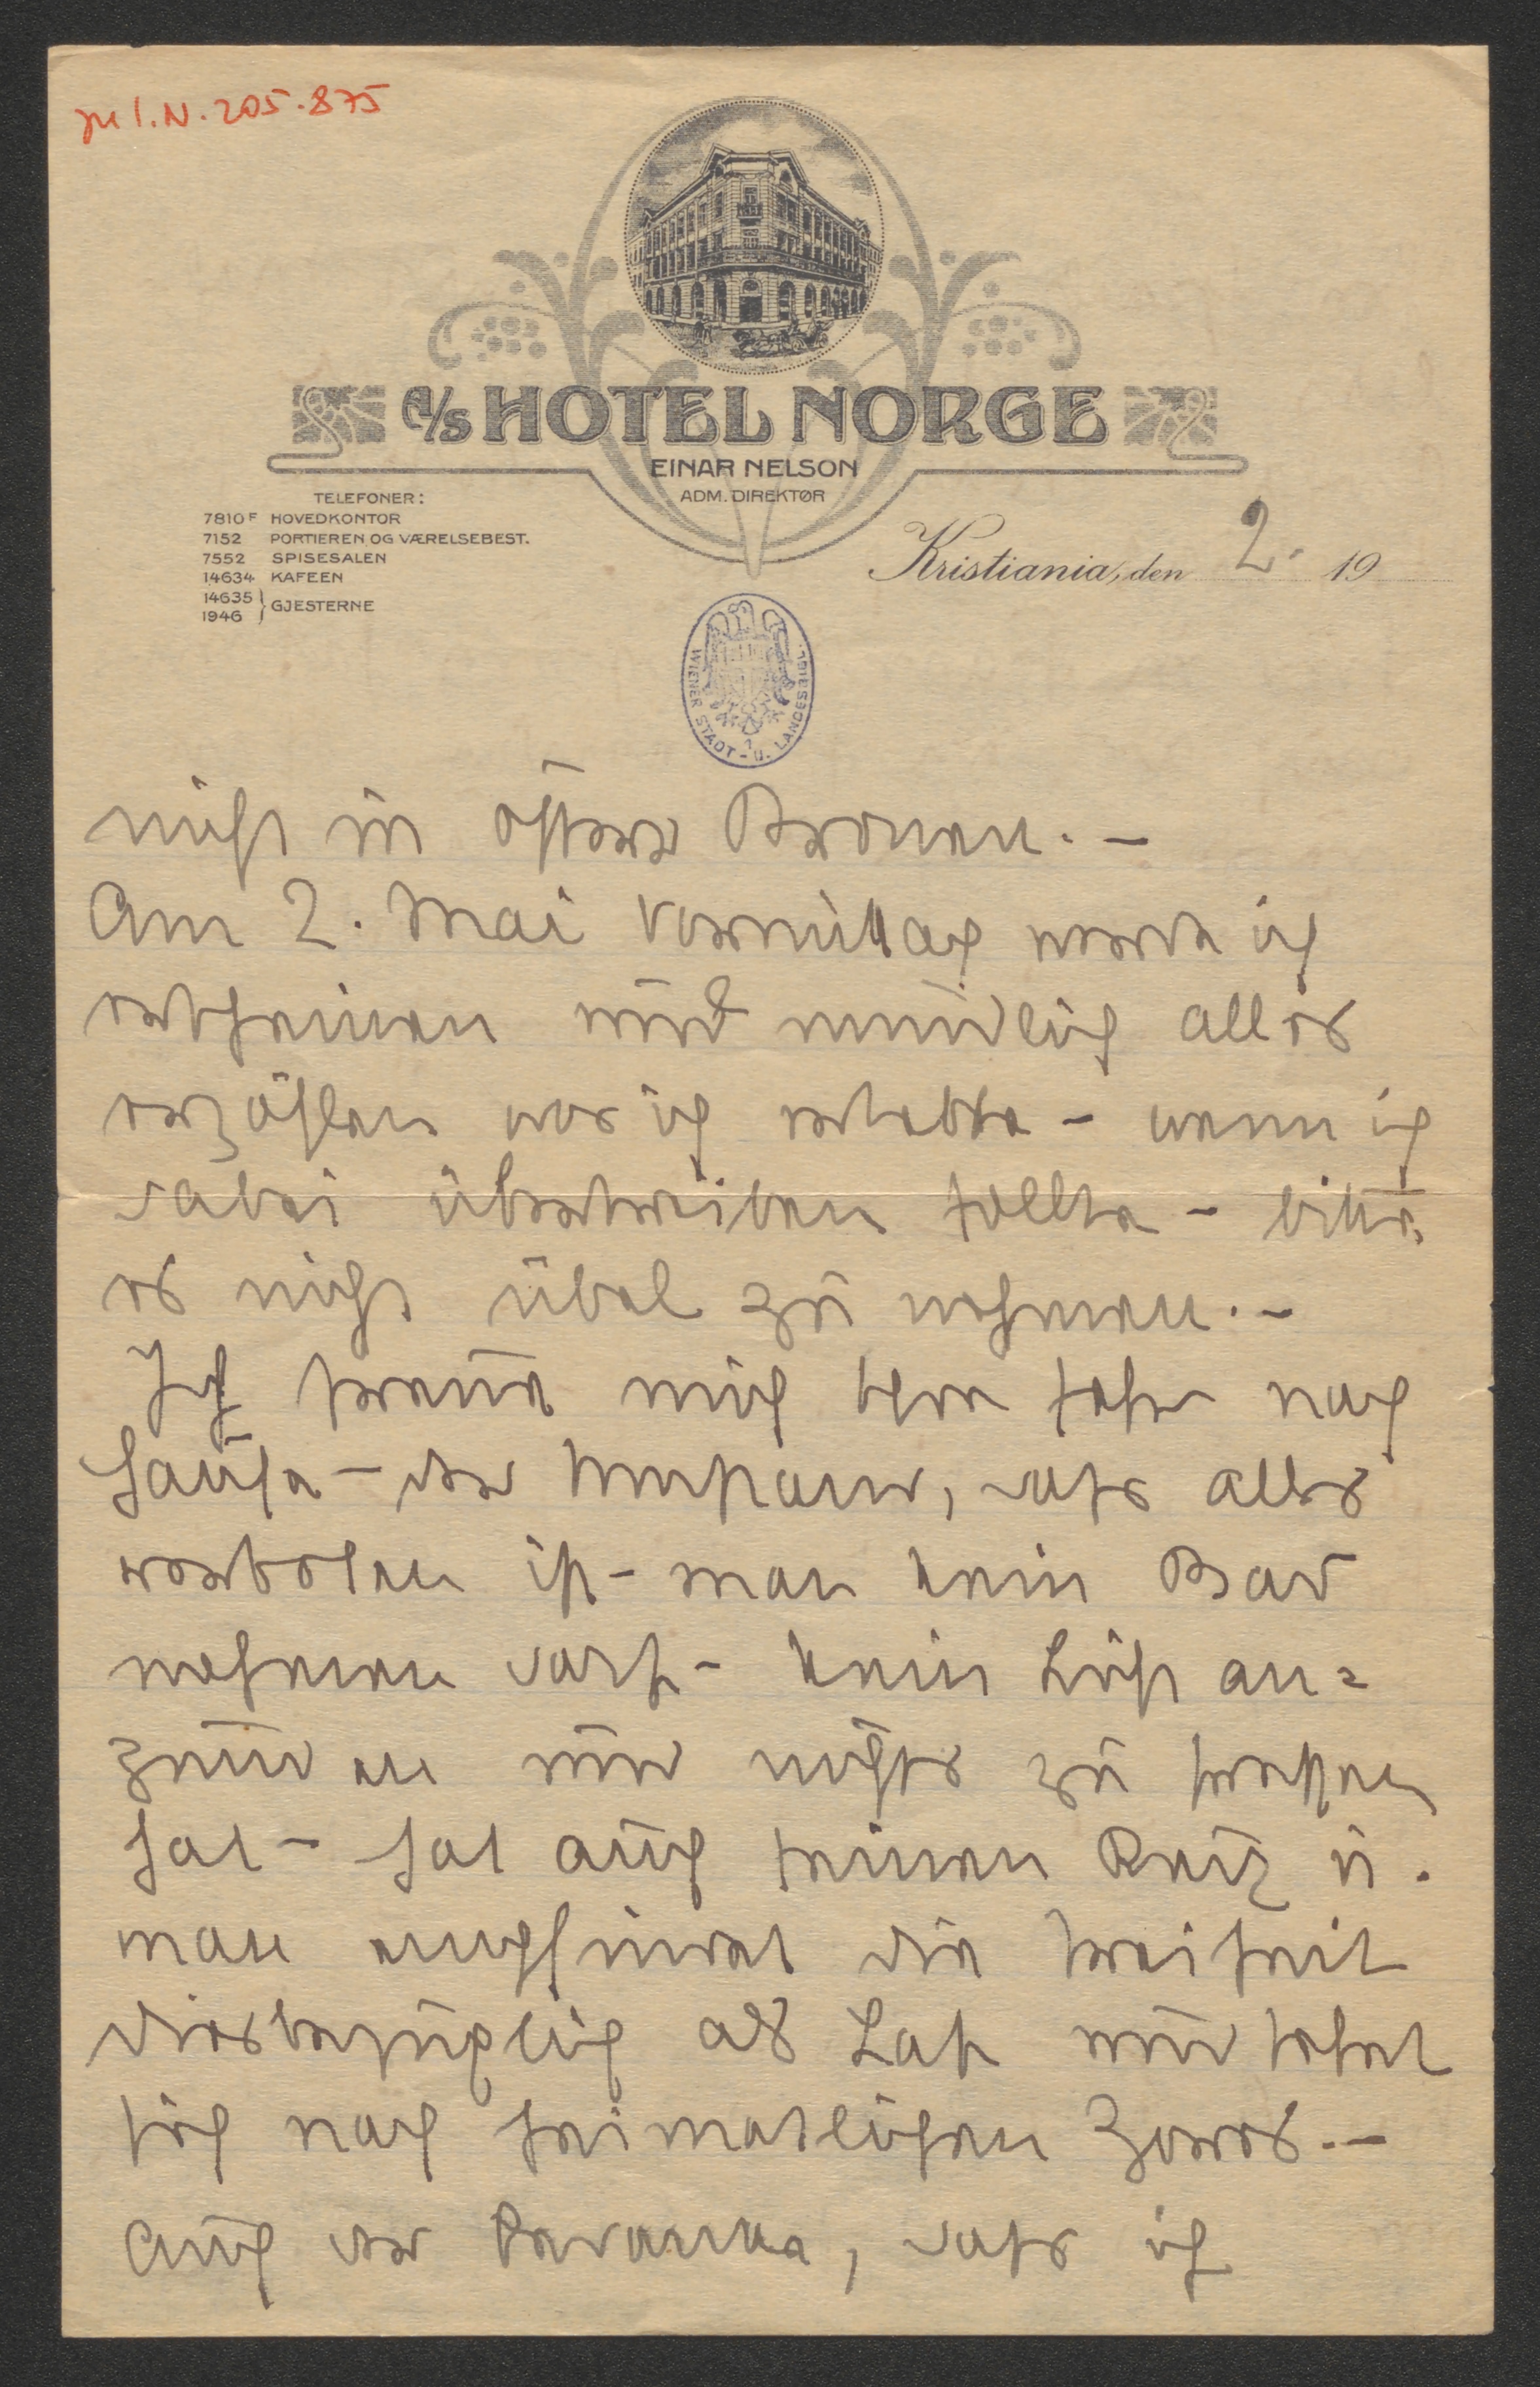 zu I.N. 205.875
A/S HOTEL NORGE
EINAR NELSON
ADM. DIREKTØR
TELEFONER:
7810F HOVEDKONTOR
7152 PORTIEREN OG VÆRELSEBEST.
7552 SPISESALEN
14634 KAFEEN
14635
1946 } GJESTERNE
Kristiania, den 2. 19
WIENER STADT- U. LANDESBIBL.
nicht in österr Kronen. –
Am 2. Mai Vormittag werde ich
erscheinen und mündlich alles
erzählen was ich erlebte – wenn ich
dabei übertreiben sollte – bitte
es nicht übel zu nehmen. –
Ich freue mich schon sehr nach
Hause – der Umstand, dass alles
verboten ist – man kein Bad
nehmen darf – kein Licht an=
zünden und nichts zu fressen
hat – hat auch seinen Reiz u.
man empfindet die Freiheit
diesbezüglich als Last und sehnt
sich nach heimatlichen Zores. –
Auch der Gedanke, dass ich